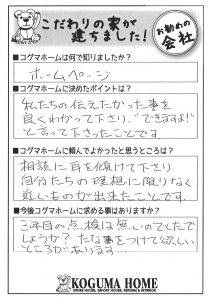 こだわりの家が
建ちました！
お勧めの
会社
■コグマホームは何で知りましたか？
ホームページ
■コグマホームに決めたポイントは？
私たちの伝えたかった事を
良くわかって下さり、"できますよ!"
と言って下さったことです。
■コグマホームに頼んでよかったと思うところは？
相談に耳を傾けて下さり
自分たちの理想に限りなく
近いものが出来たことです。
■今後コグマホームに求める事はありますか？
2年目の点検は無いのでしたで
しょうか？
をつけて欲しい
ところがあります…
KOGUMA HOME
ORDER HOUSE, IMPORT HOUSE, REFORM & INTERIOR